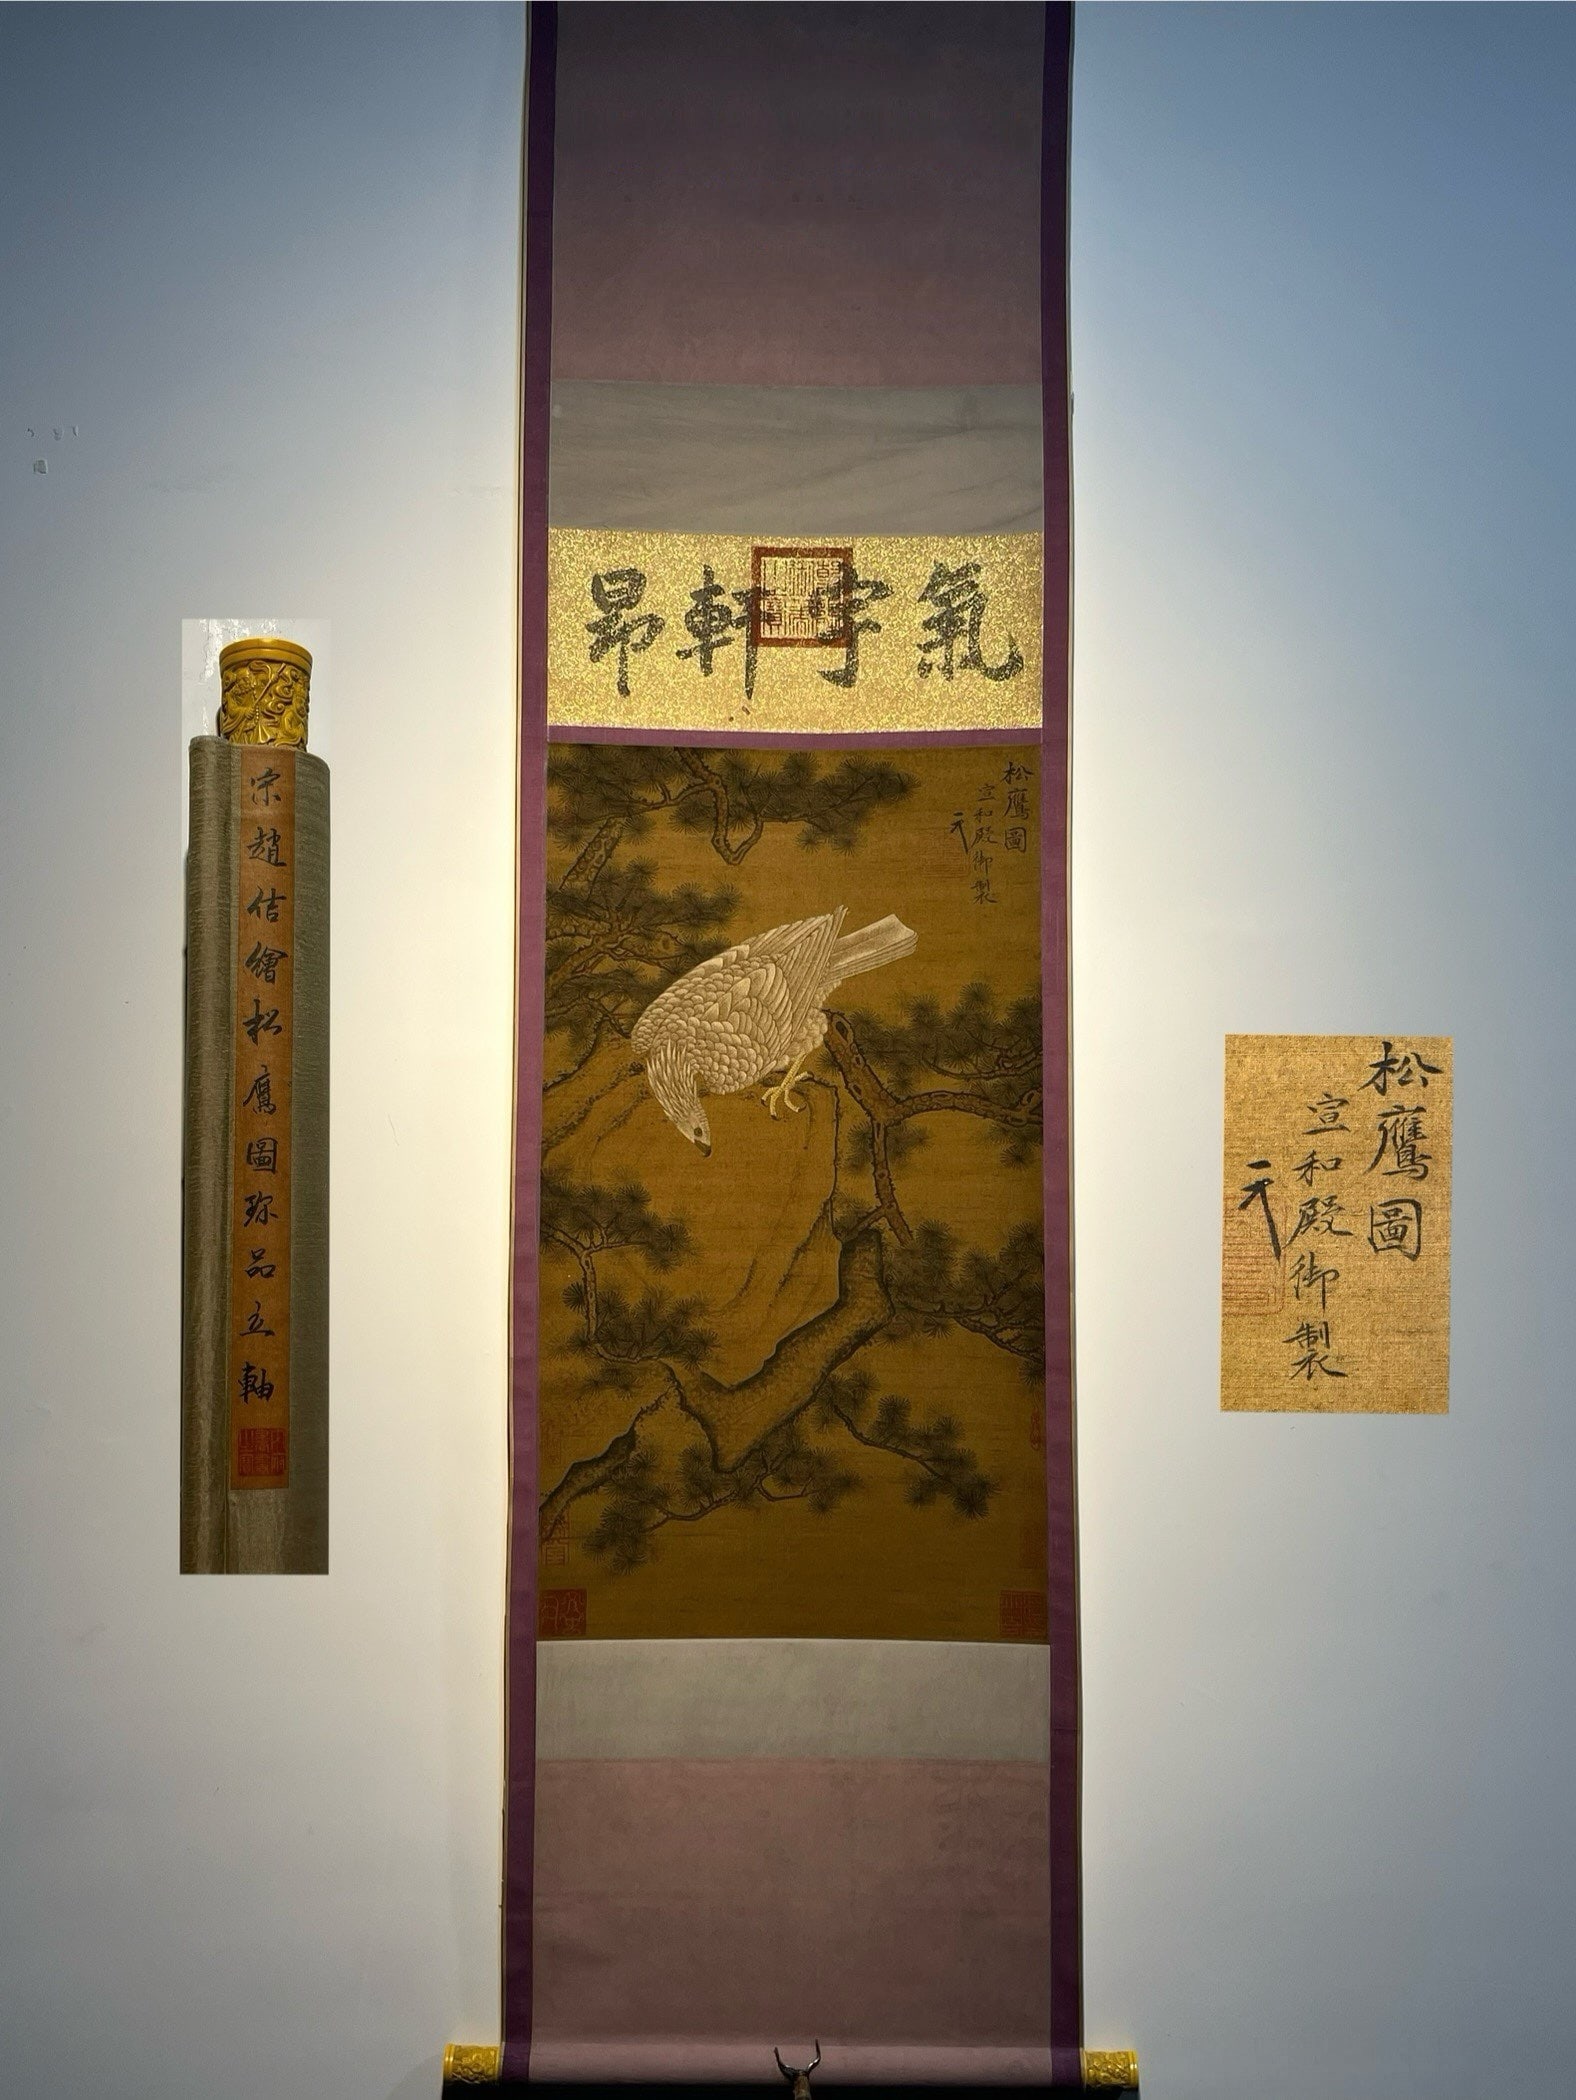 氣宇軒昂
松鷹圖
宣和殿御製
宋趙佶繪松鷹圖珎品立軸
松鷹圖
宣和殿御製